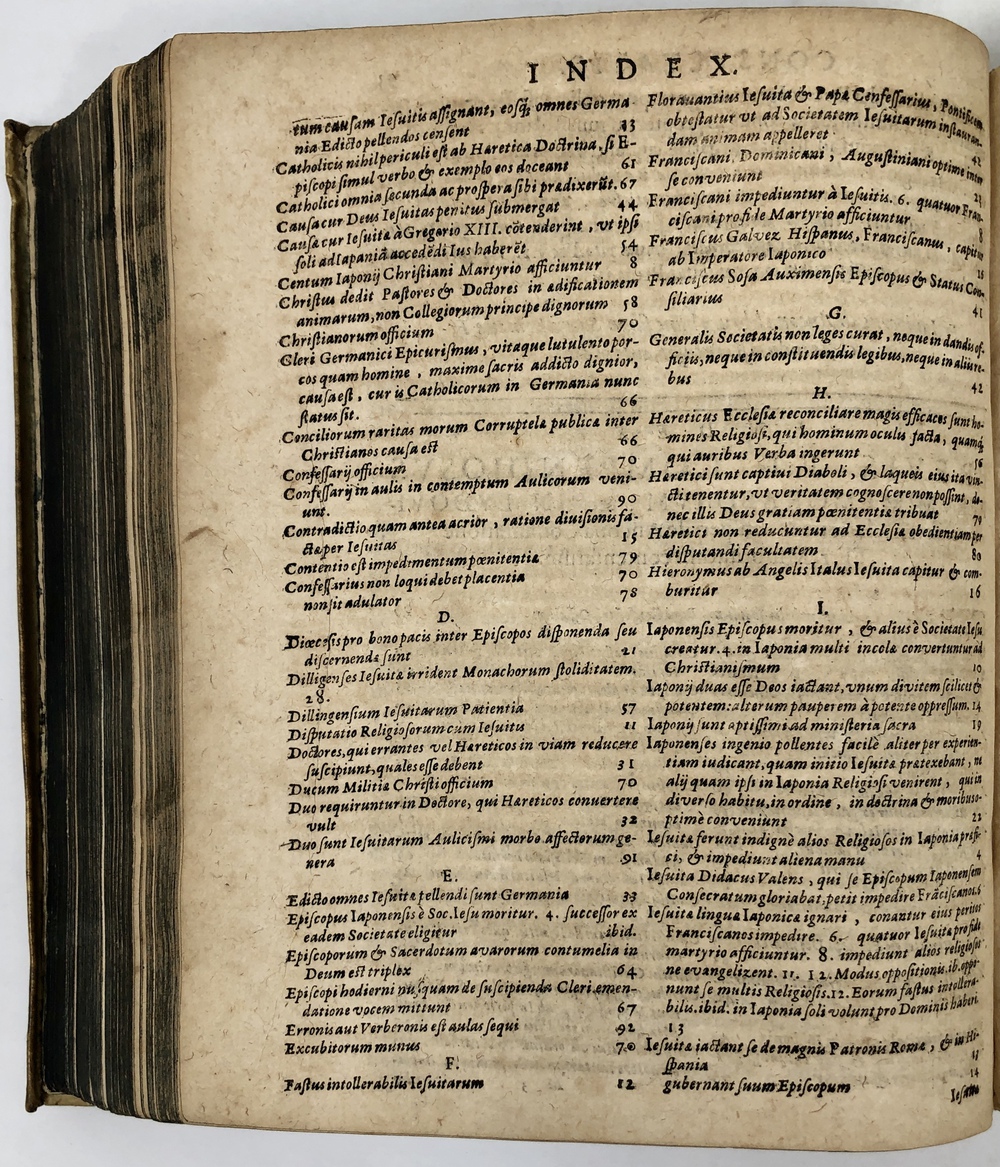 INDEX.
tum causam Iesuitis assignant, eosq́; omnes Germa-
nia Edicto pellendos censent 33
Catholicis nihil periculi est ab Hæretica Doctrina, si E-
piscopi simul verbo & exemplo eos doceant 61
Catholici omnia secunda ac prospera sibi prædixerũt. 67
Causa cur Deus Iesuitas penitus submergat 44
Causa cur Iesuitæ à Gregorio XIII. cõtenderint, vt ipsi
soli ad Iapaniã accedẽdi Ius haberẽt 54
Centum Iaponij Christiani Martyrio afficiuntur 8
Christus dedit Pastores & Doctores in ædificationem
animarum, non Collegiorum principe dignorum 58
Christianorum officium 70
Cleri Germanici Epicurismus, vitaque lutulento por-
cos quam homine, maxime sacris addicto dignior,
causa est, cur is Catholicorum in Germania nunc
status sit. 66
Conciliorum raritas morum Corruptelæ publicæ inter
Christianos causa est 66
Confessarij officium 70
Confessarij in aulis in contemptum Aulicorum veni-
unt. 90
Contradictio quam antea acrior, ratione diuisionis fa-
ctæ per Iesuitas 15
Contentio est impedimentum pœnitentiæ 79
Confessarius non loqui debet placentia 70
non sit adulator 78
D.
Diœcesis pro bono pacis inter Episcopos disponenda seu
discernendæ sunt 21
Dilligenses Iesuitæ irrident Monachorum stoliditatem.
28.
Dillingensium Iesuitarum Patientia 57
Disputatio Religiosorum cum Iesuitis 11
Doctores, qui errantes vel Hæreticos in viam reducere
suscipiunt, quales esse debent 31
Ducum Militiæ Christi officium 70
Duo requiruntur in Doctore, qui Hæreticos conuertere
vult 32
Duo sunt Iesuitarum Aulicismi morbo affectorum ge-
nera 91
E.
Edicto omnes Iesuitæ pellendi sunt Germania 33
Episcopus Iaponensis è Soc. Iesu moritur. 4. successor ex
eadem Societate eligitur ibid.
Episcoporum & Sacerdotum avarorum contumelia in
Deum est triplex 64
Episcopi hodierni nusquam de suscipienda Cleri emen-
datione vocem mittunt 67
Erronis aut Verberonis est aulas sequi 92
Excubitorum munus 70
F.
Fastus intollerabilis Iesuitarum 12
Florauantius Iesuita & Papæ Confessarius, Pontificem
obtestatur vt ad Societatem Iesuitarum instauran-
dam animam appelleret 42
Franciscani, Dominicani, Augustiniani optime inter
se conveniunt
Franciscani impediuntur à Iesuitis. 6. quatuor Fran-
ciscani pro fide Martyrio afficiuntur 8
Franciscus Galvez Hispanus, Franciscanus, capitur
ab Imperatore Iaponico 16
Franciscus Sosa Auximensis Episcopus & Status Con-
siliarius 41
G.
Generalis Societatis non leges curat, neque in dandis of-
ficiis, neque in constituendis legibus, neque in aliis re-
bus 42
H.
Hæreticus Ecclesiæ reconciliare magis efficaces sunt ho-
mines Religiosi, qui hominum oculis facta, quamq́;
qui auribus Verba ingerunt 56
Hæretici sunt captiui Diaboli, & laqueis eius ita vin-
cti tenentur, vt veritatem cognoscere non possint, do-
nec illis Deus gratiam pœnitentiæ tribuat 79
Hæretici non reducuntur ad Ecclesiæ obedientiam per
disputandi facultatem 80
Hieronymus ab Angelis Italus Iesuita capitur & com-
buritur 16
I.
Iaponensis Episcopus moritur, & alius è Societate Iesu
creatur. 4. in Iaponia multi incolæ convertuntur ad
Christianismum 10
Iaponij duas esse Deos iactant, vnum divitem scilicet &
potentem: alterum pauperem à potente oppressum. 14
Iaponij sunt aptissimi ad ministeria sacra 19
Iaponenses ingenio pollentes facilè aliter per experien-
tiam iudicant, quam initio Iesuitæ prætexebant, ni
alij quam ipsi in Iaponia Religiosi venirent, qui in
diverso habitu, in ordine, in doctrina & moribus o-
ptimè conveniunt 22
Iesuitæ ferunt indignè alios Religiosos in Iaponia præfi-
ci, & impediunt aliena manu 4
Iesuita Didacus Valens, qui se Episcopum Iaponensem
Consecratum gloriabat, petit impedire Frãciscanos. 6
Iesuitæ lingua Iaponicæ ignari, conantur eius peritos
Franciscanos impedire. 6. quatuor Iesuitæ pro fide
martyrio afficiuntur. 8. impediunt alios religiosos
ne evangelizent. 11. 12. Modus oppositionis. ib. oppo-
nunt se multis Religiosis. 12. Eorum fastus intollera-
bilis. ibid. in Iaponia soli volunt pro Dominis haberi.
13
Iesuitæ iactant se de magnis Patronis Romæ, & in Hi-
spania 13
gubernant suum Episcopum 14
Iesuitæ